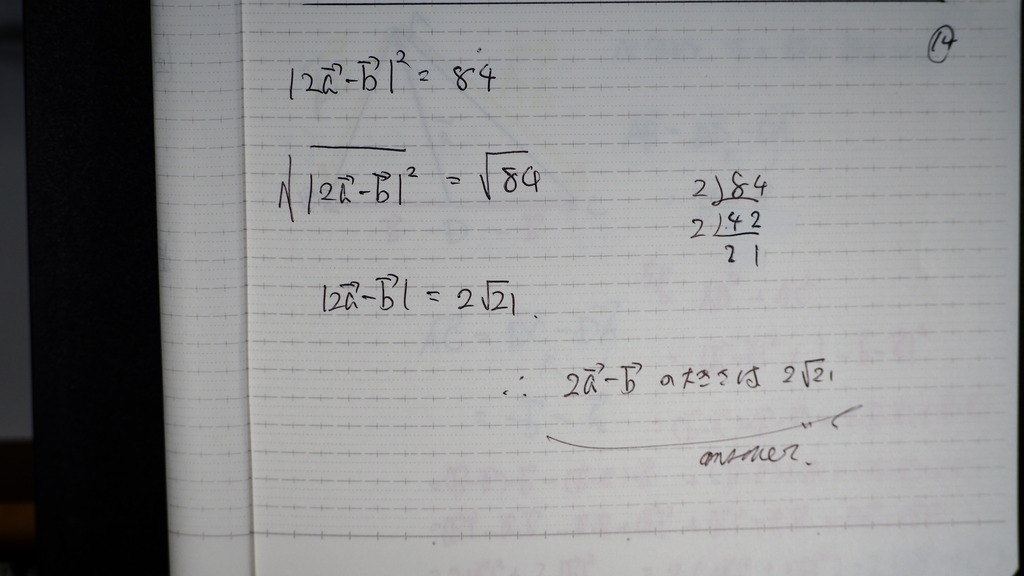 ⑭
|2a⃗-b⃗|² = 84
√|2a⃗-b⃗|² = √84
2)84
2)42
21
|2a⃗-b⃗| = 2√21.
∴ 2a⃗-b⃗ の大きさは 2√21
answer.